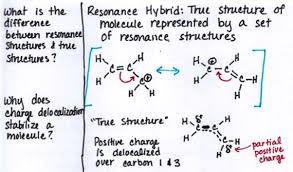 What is the
difference
between resonance
Structures & true
Structures?
Why does
charge delocalization
stabilize a
molecule?
Resonance Hybrid: True structure of
molecule represented by a set
of resonance structures
H H
H C C H
C ⊕
H H
H ⊕ H
H C C H
C—H
H
"True Structure"
Positive
charge is
delocalized
over carbon 1 & 3
H δ⁺ H
C C
H C H
H δ⁺
partial
positive
charge